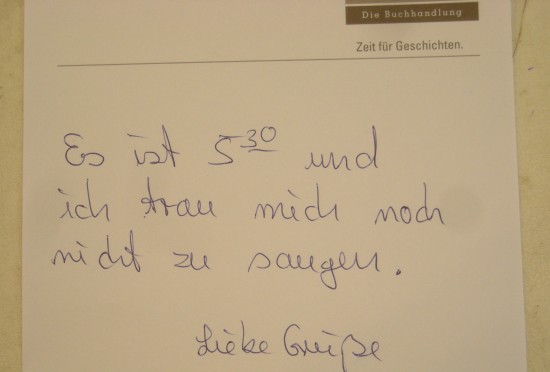 Die Buchhandlung
Zeit für Geschichten.
Es ist 5³⁰ und
ich trau mich noch
nicht zu saugen.
Liebe Grüße